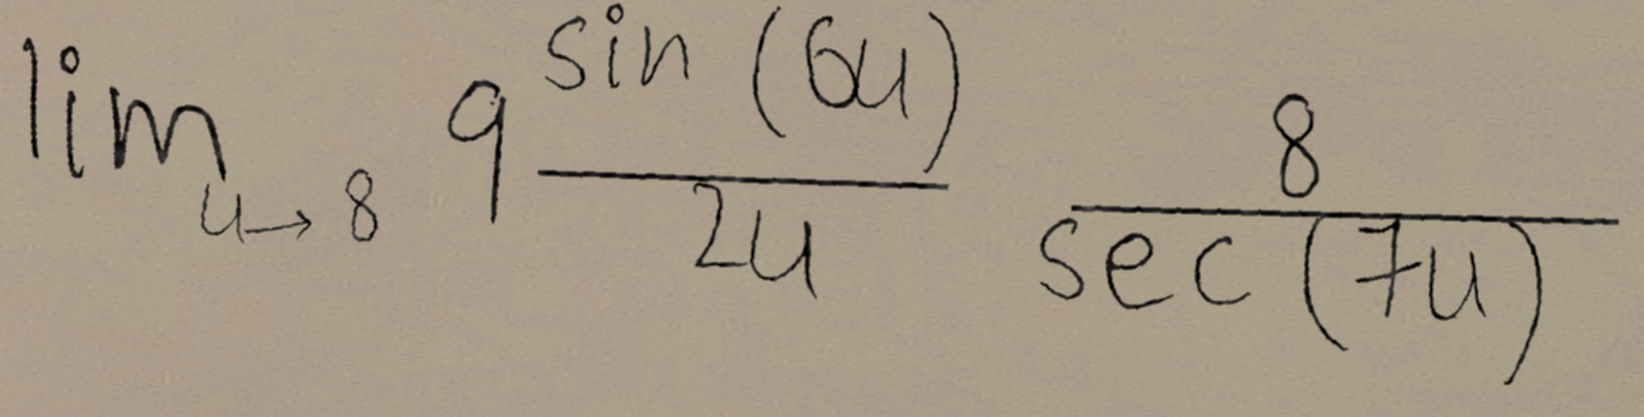 lim_{u→8} 9 \frac{sin(6u)}{2u} \frac{8}{sec(7u)}